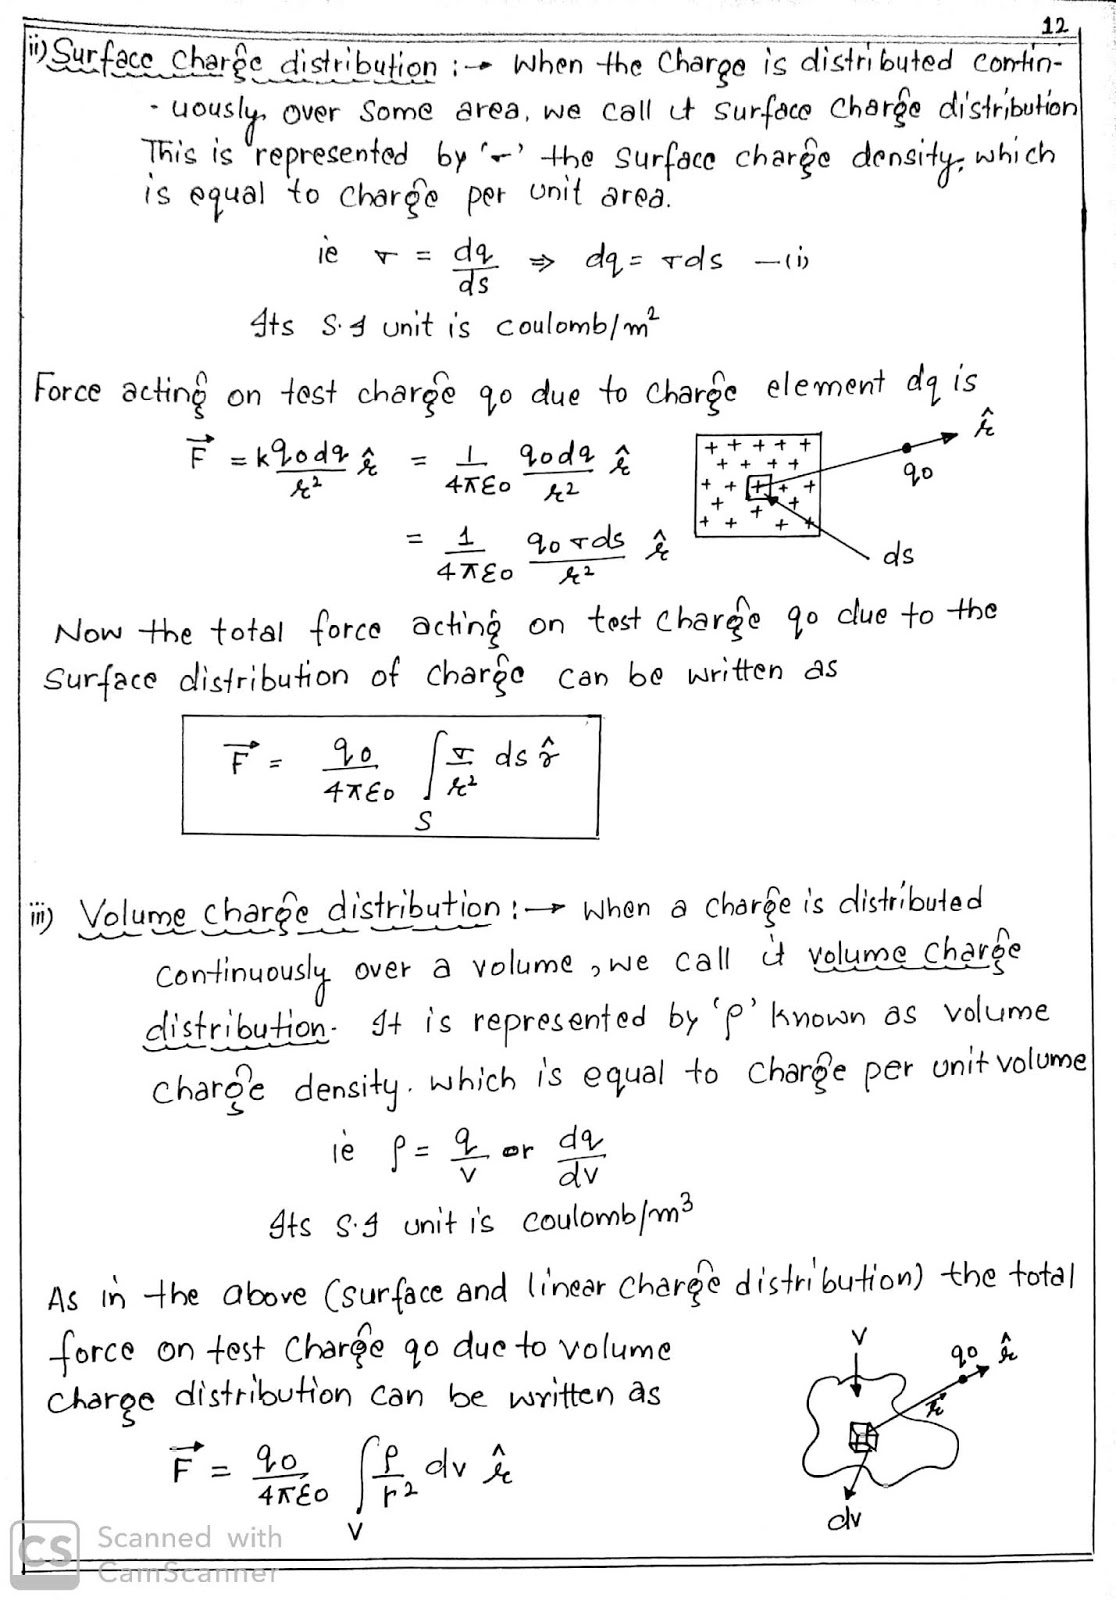 12
ii) Surface Charge distribution :→ When the Charge is distributed contin-
- uously, over Some area, we call it Surface Charge distribution
This is represented by 'σ' the Surface charge density, which
is equal to charge per unit area.
ie σ = dq/ds ⇒ dq = σds —(i)
Its S.I unit is coulomb/m²
Force acting on test charge q₀ due to charge element dq is
F⃗ = k q₀dq/r² r̂ = 1/4πε₀ q₀dq/r² r̂
= 1/4πε₀ q₀σds/r² r̂
+ + + + +
r̂
q₀
ds
Now the total force acting on test charge q₀ due to the
Surface distribution of Charge can be written as
F⃗ = q₀/4πε₀ ∫S σ/r² ds r̂
iii) Volume charge distribution :→ When a charge is distributed
Continuously over a volume, we call it volume Charge
distribution. It is represented by 'ρ' known as volume
Charge density. which is equal to charge per unit volume
ie ρ = q/v or dq/dv
Its S.I unit is coulomb/m³
As in the above (surface and linear charge distribution) the total
force on test Charge q₀ due to volume
Charge distribution can be written as
F⃗ = q₀/4πε₀ ∫V ρ/r² dv r̂
V
q₀ r̂
r⃗
dv
CS Scanned with
CamScanner